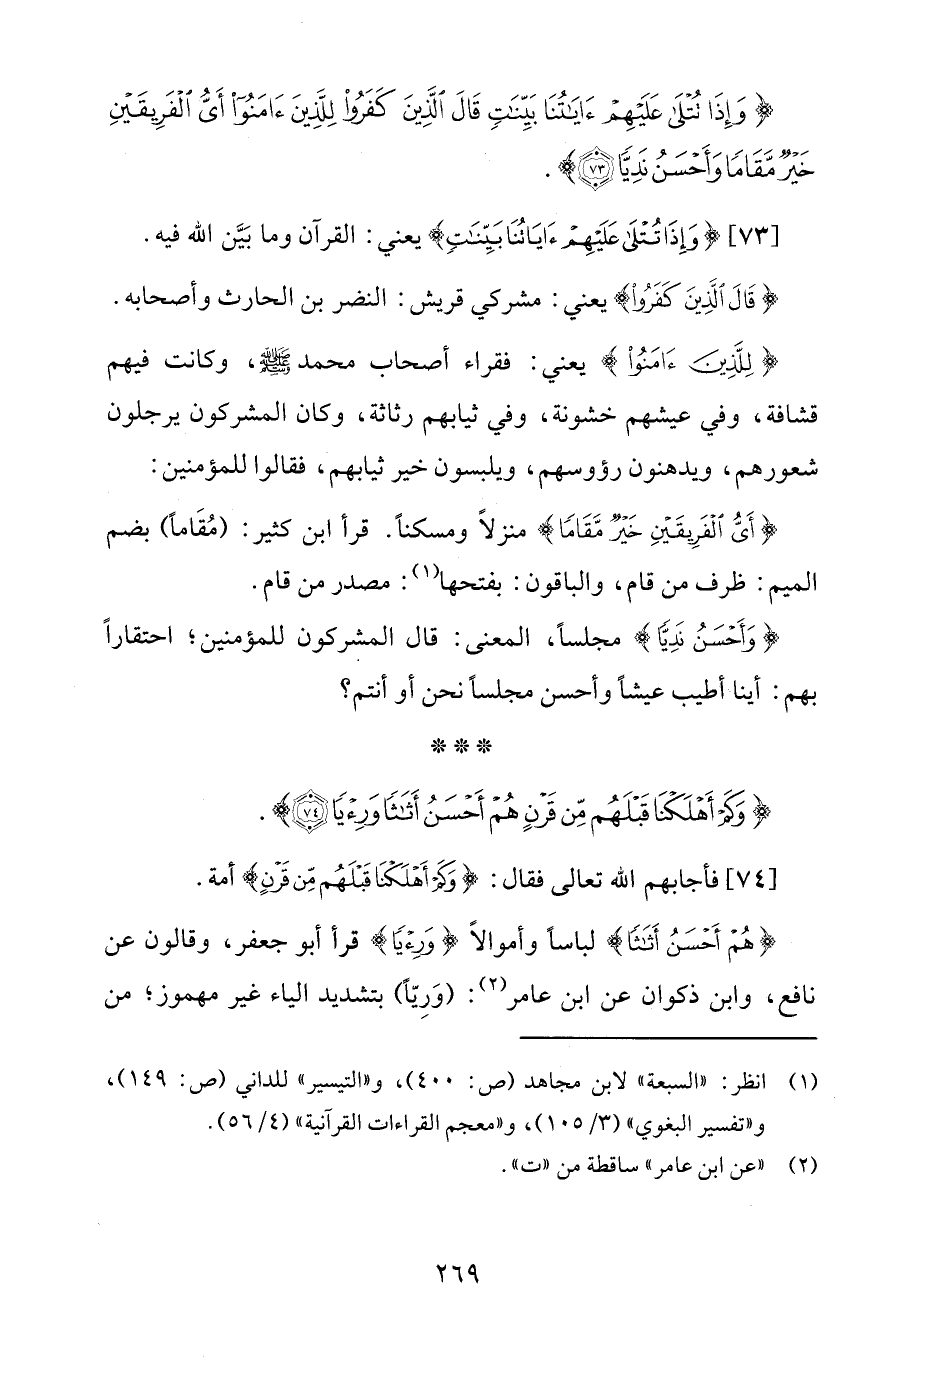 ﴿ وَإِذَا تُتْلَىٰ عَلَيْهِمْ ءَايَٰتُنَا بَيِّنَٰتٍ قَالَ ٱلَّذِينَ كَفَرُوا۟ لِلَّذِينَ ءَامَنُوٓا۟ أَىُّ ٱلْفَرِيقَيْنِ
خَيْرٌ مَّقَامًا وَأَحْسَنُ نَدِيًّا ٧٣﴾ .
[٧٣] ﴿ وَإِذَا تُتْلَىٰ عَلَيْهِمْ ءَايَاتُنَا بَيِّنَٰتٍ﴾ يعني: القرآن وما بيَّن الله فيه.
﴿ قَالَ ٱلَّذِينَ كَفَرُوا۟﴾ يعني: مشركي قريش: النضر بن الحارث وأصحابه.
﴿ لِلَّذِينَ ءَامَنُوٓا۟ ﴾ يعني: فقراء أصحاب محمد ﷺ، وكانت فيهم
قشافة، وفي عيشهم خشونة، وفي ثيابهم رثاثة، وكان المشركون يرجلون
شعورهم، ويدهنون رؤوسهم، ويلبسون خير ثيابهم، فقالوا للمؤمنين:
﴿ أَىُّ ٱلْفَرِيقَيْنِ خَيْرٌ مَّقَامًا﴾ منزلاً ومسكناً. قرأ ابن كثير: (مُقَاماً) بضم
الميم: ظرف من قام، والباقون: بفتحها(١): مصدر من قام.
﴿ وَأَحْسَنُ نَدِيًّا ﴾ مجلساً، المعنى: قال المشركون للمؤمنين؛ احتقاراً
بهم: أينا أطيب عيشاً وأحسن مجلساً نحن أو أنتم؟
* * *
﴿ وَكَمْ أَهْلَكْنَا قَبْلَهُم مِّن قَرْنٍ هُمْ أَحْسَنُ أَثَٰثًا وَرِءْيًا ٧٤﴾ .
[٧٤] فأجابهم الله تعالى فقال: ﴿ وَكَمْ أَهْلَكْنَا قَبْلَهُم مِّن قَرْنٍ﴾ أمة.
﴿ هُمْ أَحْسَنُ أَثَٰثًا﴾ لباساً وأموالاً ﴿ وَرِءْيًا﴾ قرأ أبو جعفر، وقالون عن
نافع، وابن ذكوان عن ابن عامر(٢): (وَرِيّاً) بتشديد الياء غير مهموز؛ من
(١) انظر: «السبعة» لابن مجاهد (ص: ٤٠٠)، و«التيسير» للداني (ص: ١٤٩)،
و«تفسير البغوي» (٣/ ١٠٥)، و«معجم القراءات القرآنية» (٤/ ٥٦).
(٢) «عن ابن عامر» ساقطة من «ت».
٢٦٩